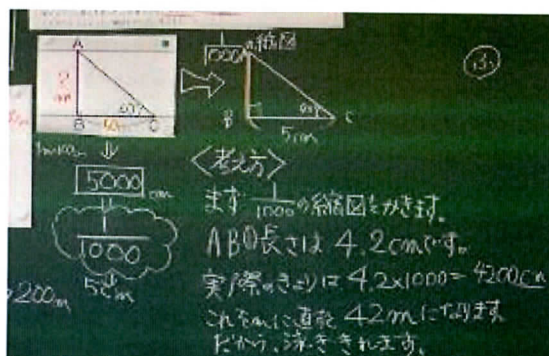 A
B
C
1/1000の縮図
B
C
5cm
ふ
5000 cm
1/1000
5cm
200m
〈考え方〉
まず 1/1000の縮図をかきます。
ABの長さは 4.2cmです。
実際のきょりは 4.2×1000=4200cm
これをmに直すと 42mになります
だから、泳ぎきれます。